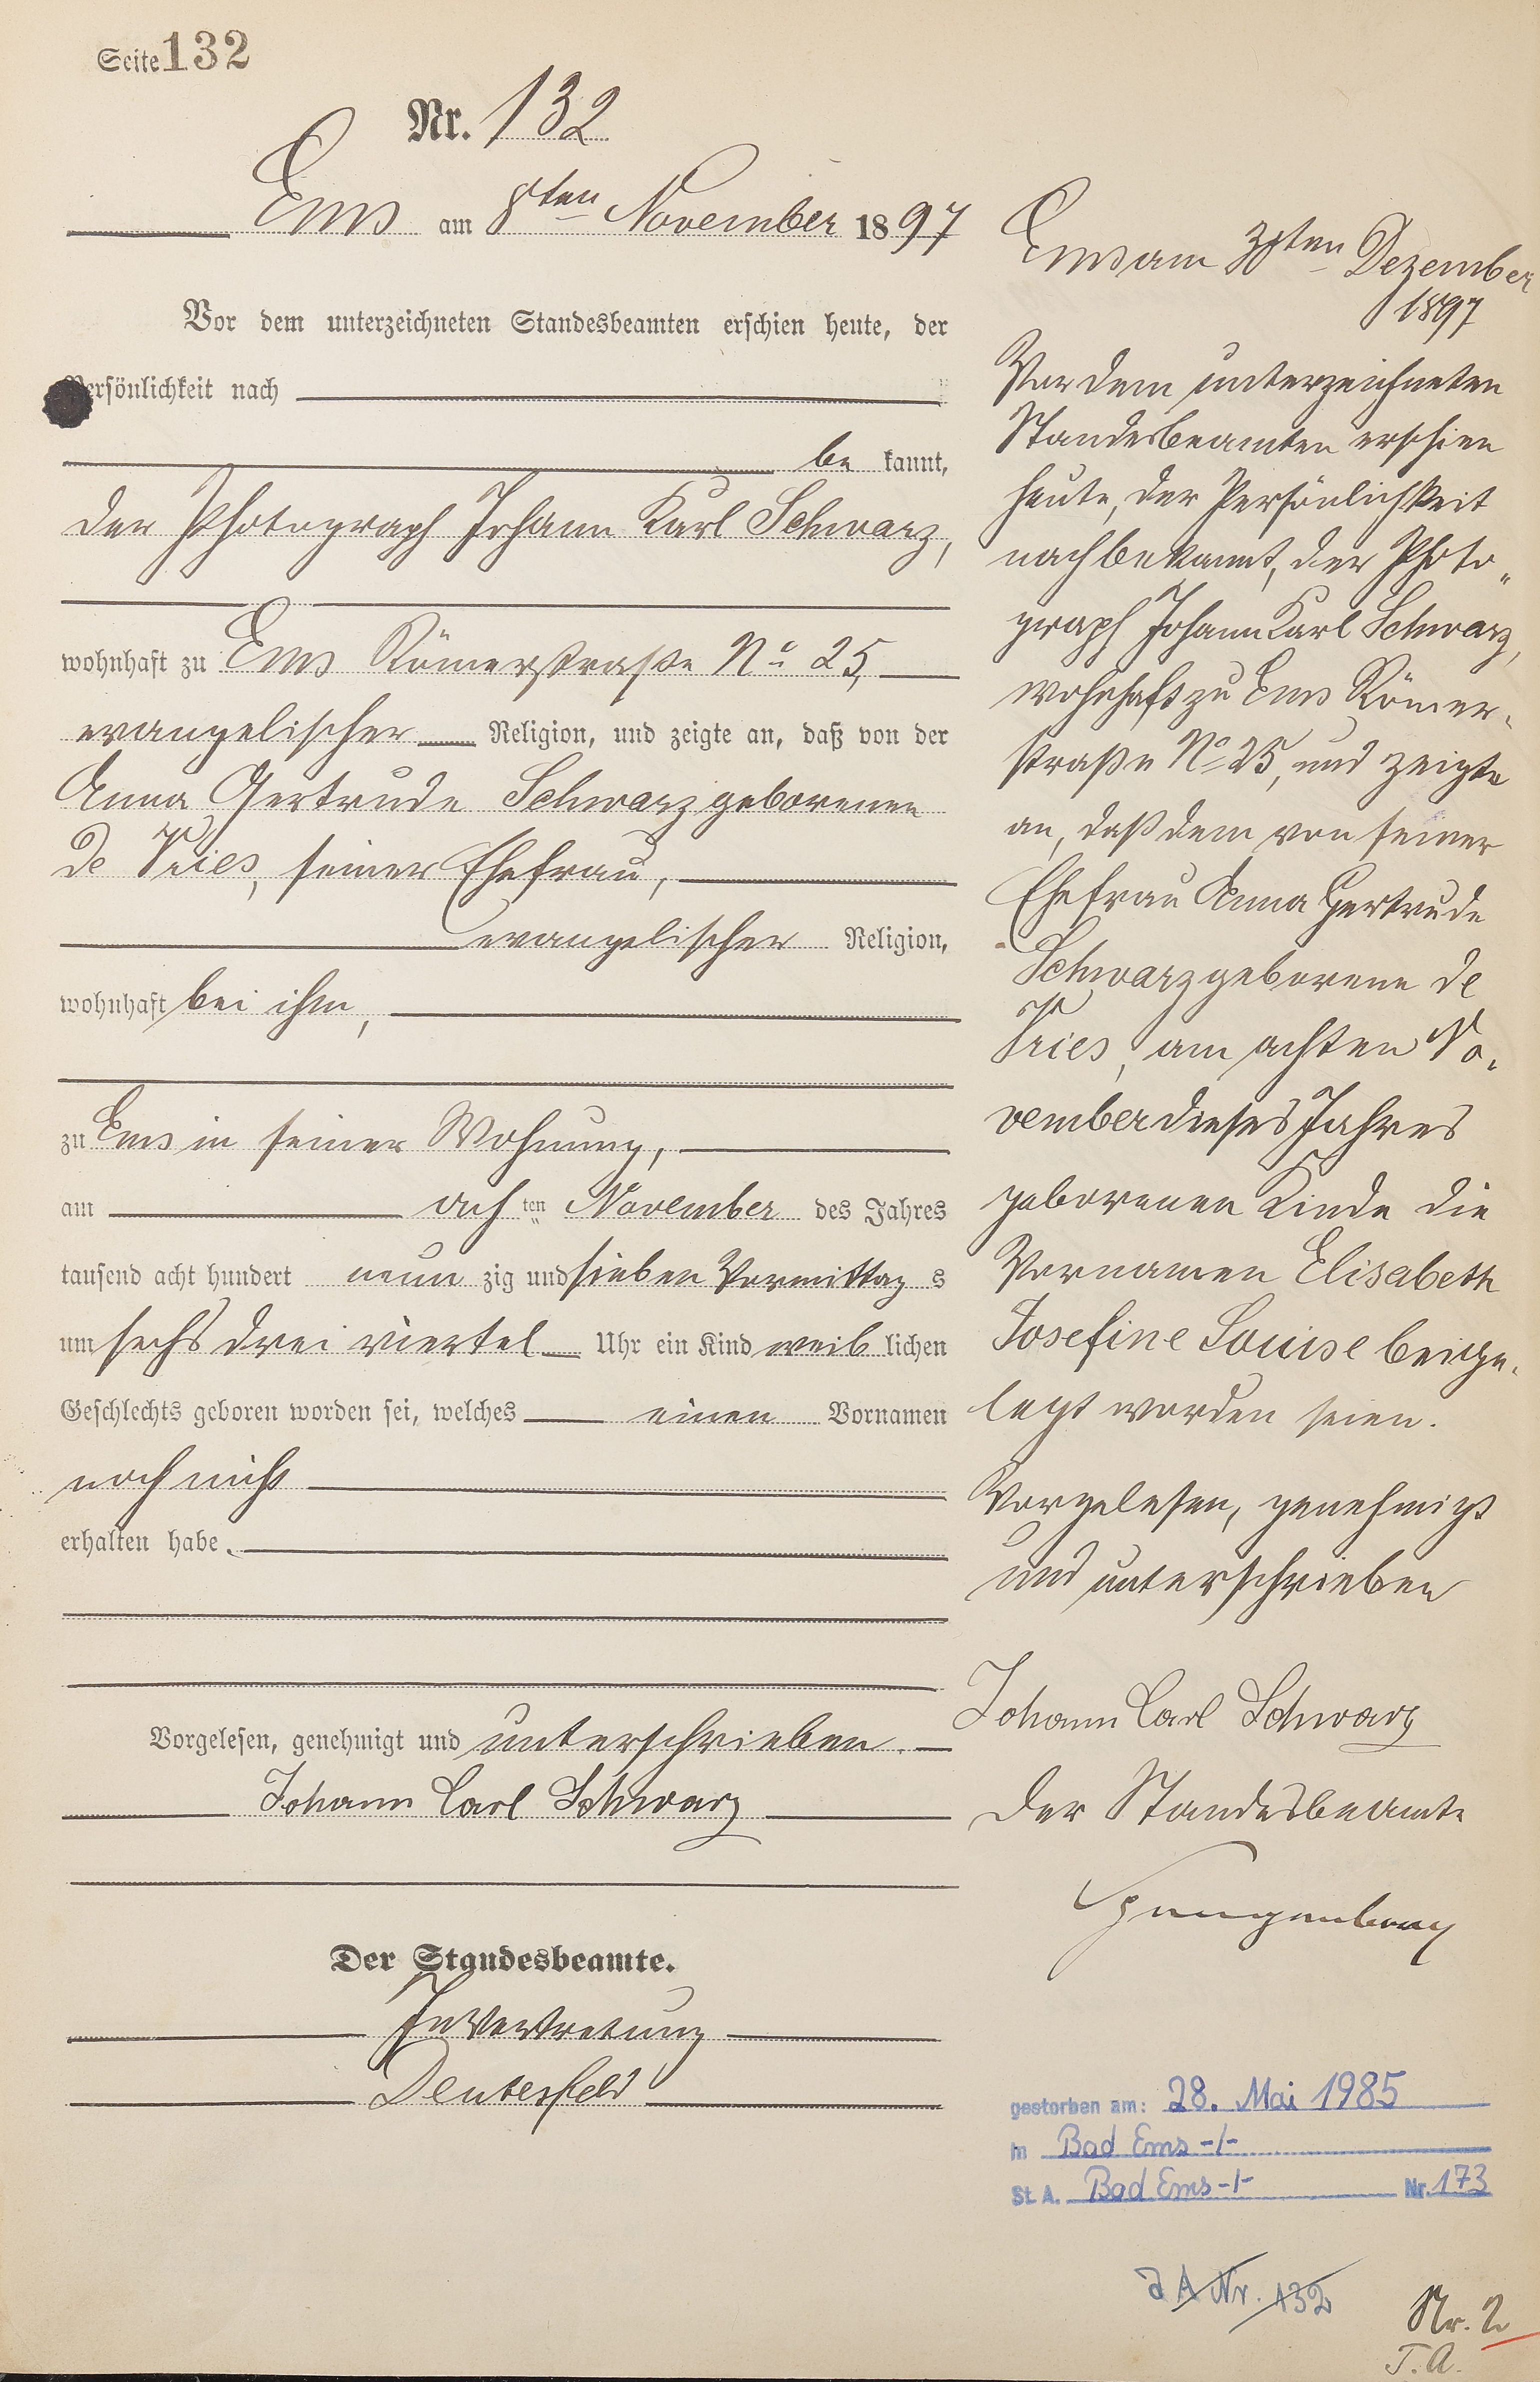 Seite 132
Nr. 132
Ems am 8ten November 1897
Vor dem unterzeichneten Standesbeamten erschien heute, der
Persönlichkeit nach
be kannt,
der Photograph Johann Karl Schwarz,
wohnhaft zu Ems Römerstraße No 25,
evangelischer Religion, und zeigte an, daß von der
Anna Gertrude Schwarz geborenen
de Vries, seiner Ehefrau,
evangelischer Religion,
wohnhaft bei ihm,
zu Ems in seiner Wohnung,
am ach ten November des Jahres
tausend acht hundert neun zig und sieben Vormittag s
um sechs drei viertel Uhr ein Kind weib lichen
Geschlechts geboren worden sei, welches einen Vornamen
noch nicht
erhalten habe.
Vorgelesen, genehmigt und unterschrieben.
Johann Carl Schwarz
Der Standesbeamte.
In Vertretung
Deutesfeld
Ems am Dezember
1897
Vor dem unterzeichneten
Standesbeamten erschien
heute, der Persönlichkeit
nach bekannt, der Photo„
graph Johann Karl Schwarz,
wohnhaft zu Ems Römer-
straße No 25, und zeigte
an, daß dem von seiner
Ehefrau Anna Gertrude
Schwarz geborene de
Vries, am achten No-
vember dieses Jahres
geborenen Kinde die
Vornamen Elisabeth
Josefine Louise beige-
legt worden seien.
Vorgelesen, genehmigt
und unterschrieben
Johann Carl Schwarz
Der Standesbeamte
Spangenberg
gestorben am: 28. Mai 1985
in Bad Ems -/-
St. A. Bad Ems -/- Nr. 173
A Nr. 132
Nr. 2
T. A.